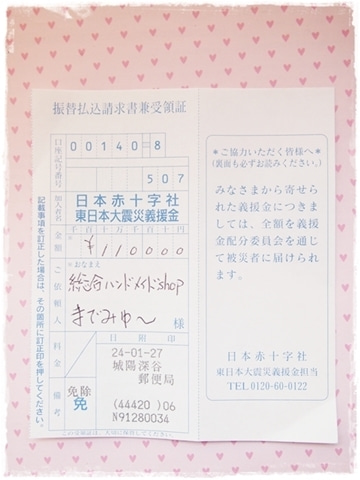 振替払込請求書兼受領証
口座記号番号
00140 8
507
加入者名
日本赤十字社
東日本大震災義援金
金額
千百十万千百十円
¥110000
ご依頼人
*おなまえ
総合ハンドメイドshop
までみゅ〜
様
料金
備考
日附印
24-01-27
城陽深谷
郵便局
免除
免
(44420 )06
N91280034
この受領証は、大切に保管してください。
記載事項を訂正した場合は、その箇所に訂正印を押してください。
*ご協力いただく皆様へ*
(裏面も必ずお読みください。)
みなさまから寄せら
れた義援金につきま
しては、全額を義援
金配分委員会を通じ
て被災者に届けられ
ます。
日本赤十字社
東日本大震災義援金担当
TEL.0120-60-0122